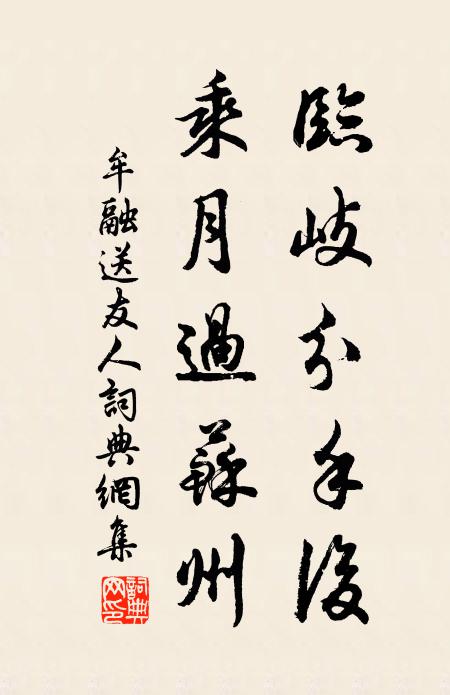 臨歧分手後
乘月過蘇州
牟融送友人詞典網集
詞典網印